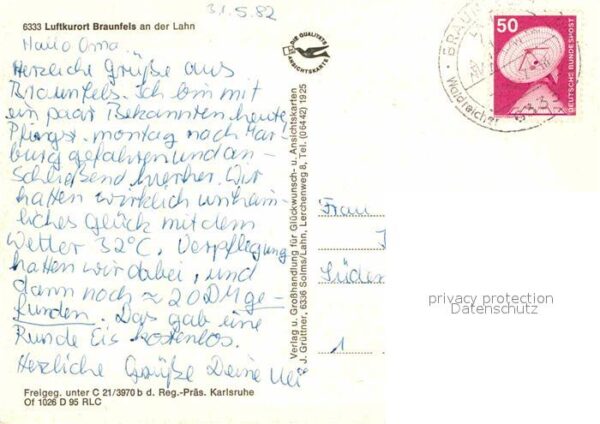 31.5.82
6333 Luftkurort Braunfels an der Lahn
Hallo Oma
Herzliche Grüße aus
Braunfels. Ich bin mit
ein paar Bekannten heute
Pfingst-montag nach Mar-
burg gefahren und an-
schließend hierher. Wir
hatten wirklich unheim-
liches Glück mit dem
Wetter 32°C, Verpflegung
hatten wir dabei, und
dann noch ≈ 20 DM ge-
funden. Das gab eine
Runde Eis kostenlos.
Herzliche Grüße Deine Uli
Freigeg. unter C 21/3970 b d. Reg.-Präs. Karlsruhe
Of 1026 D 95 RLC
DIE QUALITÄTS
ANSICHTSKARTE
Verlag u. Großhandlung für Glückwunsch- u. Ansichtskarten
J. Grüttner, 6336 Solms/Lahn, Lerchenweg 8, Tel. (06442) 1925
50
DEUTSCHE BUNDESPOST
Waldreicher
633
Frau
Süder
1
privacy protection
Datenschutz